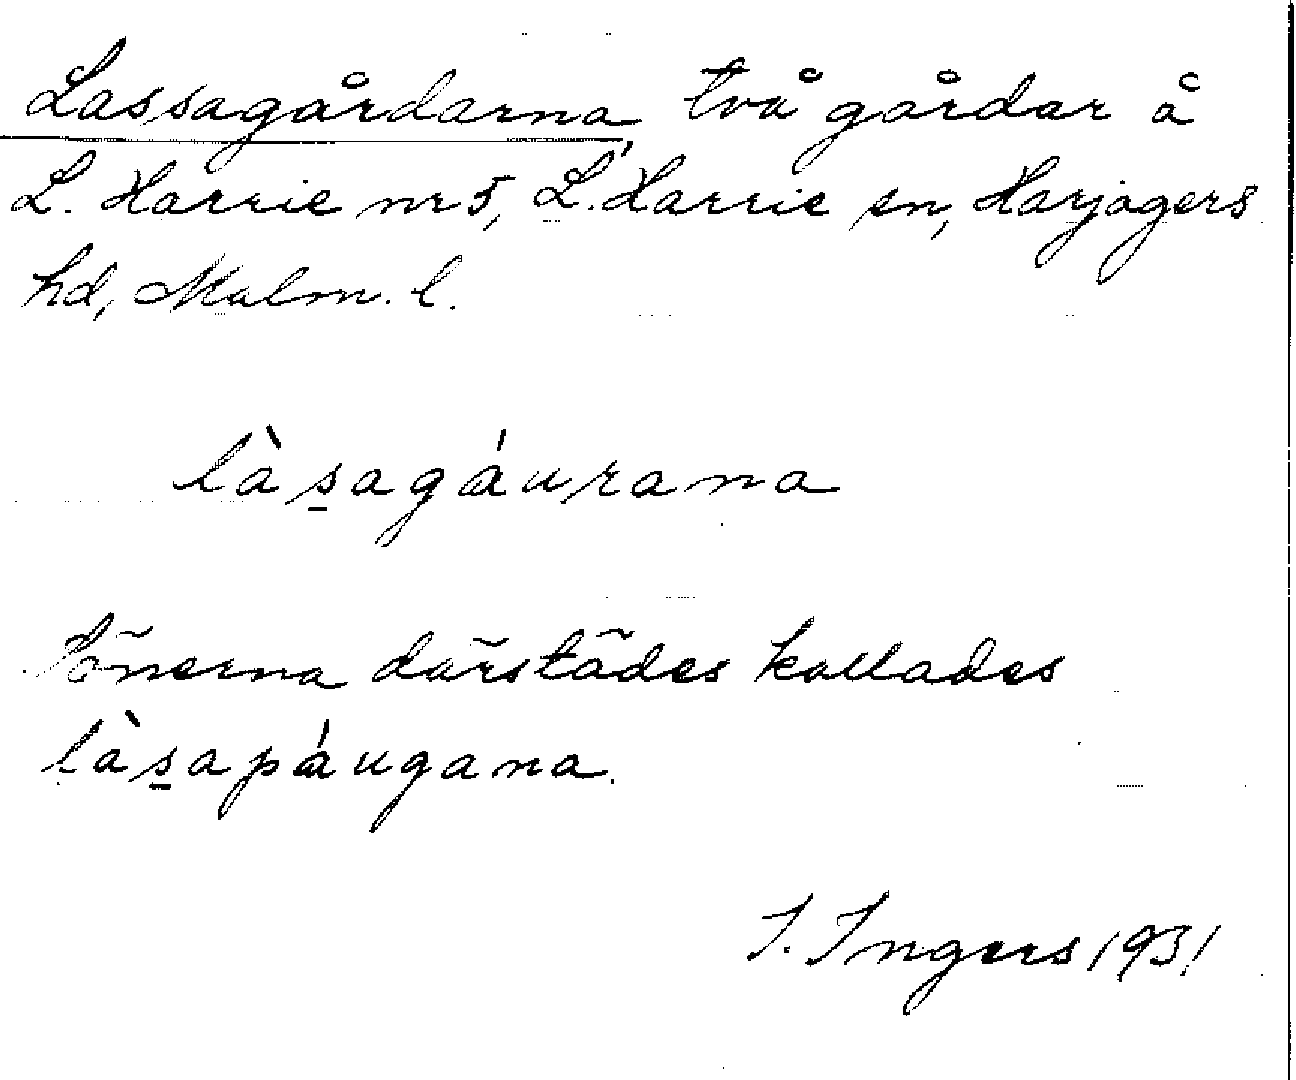 Lassagårdarna, två gårdar å
L. Harrie nr 5, L. Harrie sn, Harjagers
hd, Malm. l.
làs̱agáurana
Sönerna därstädes kallades
làs̱apáugana.
I. Ingers 1931